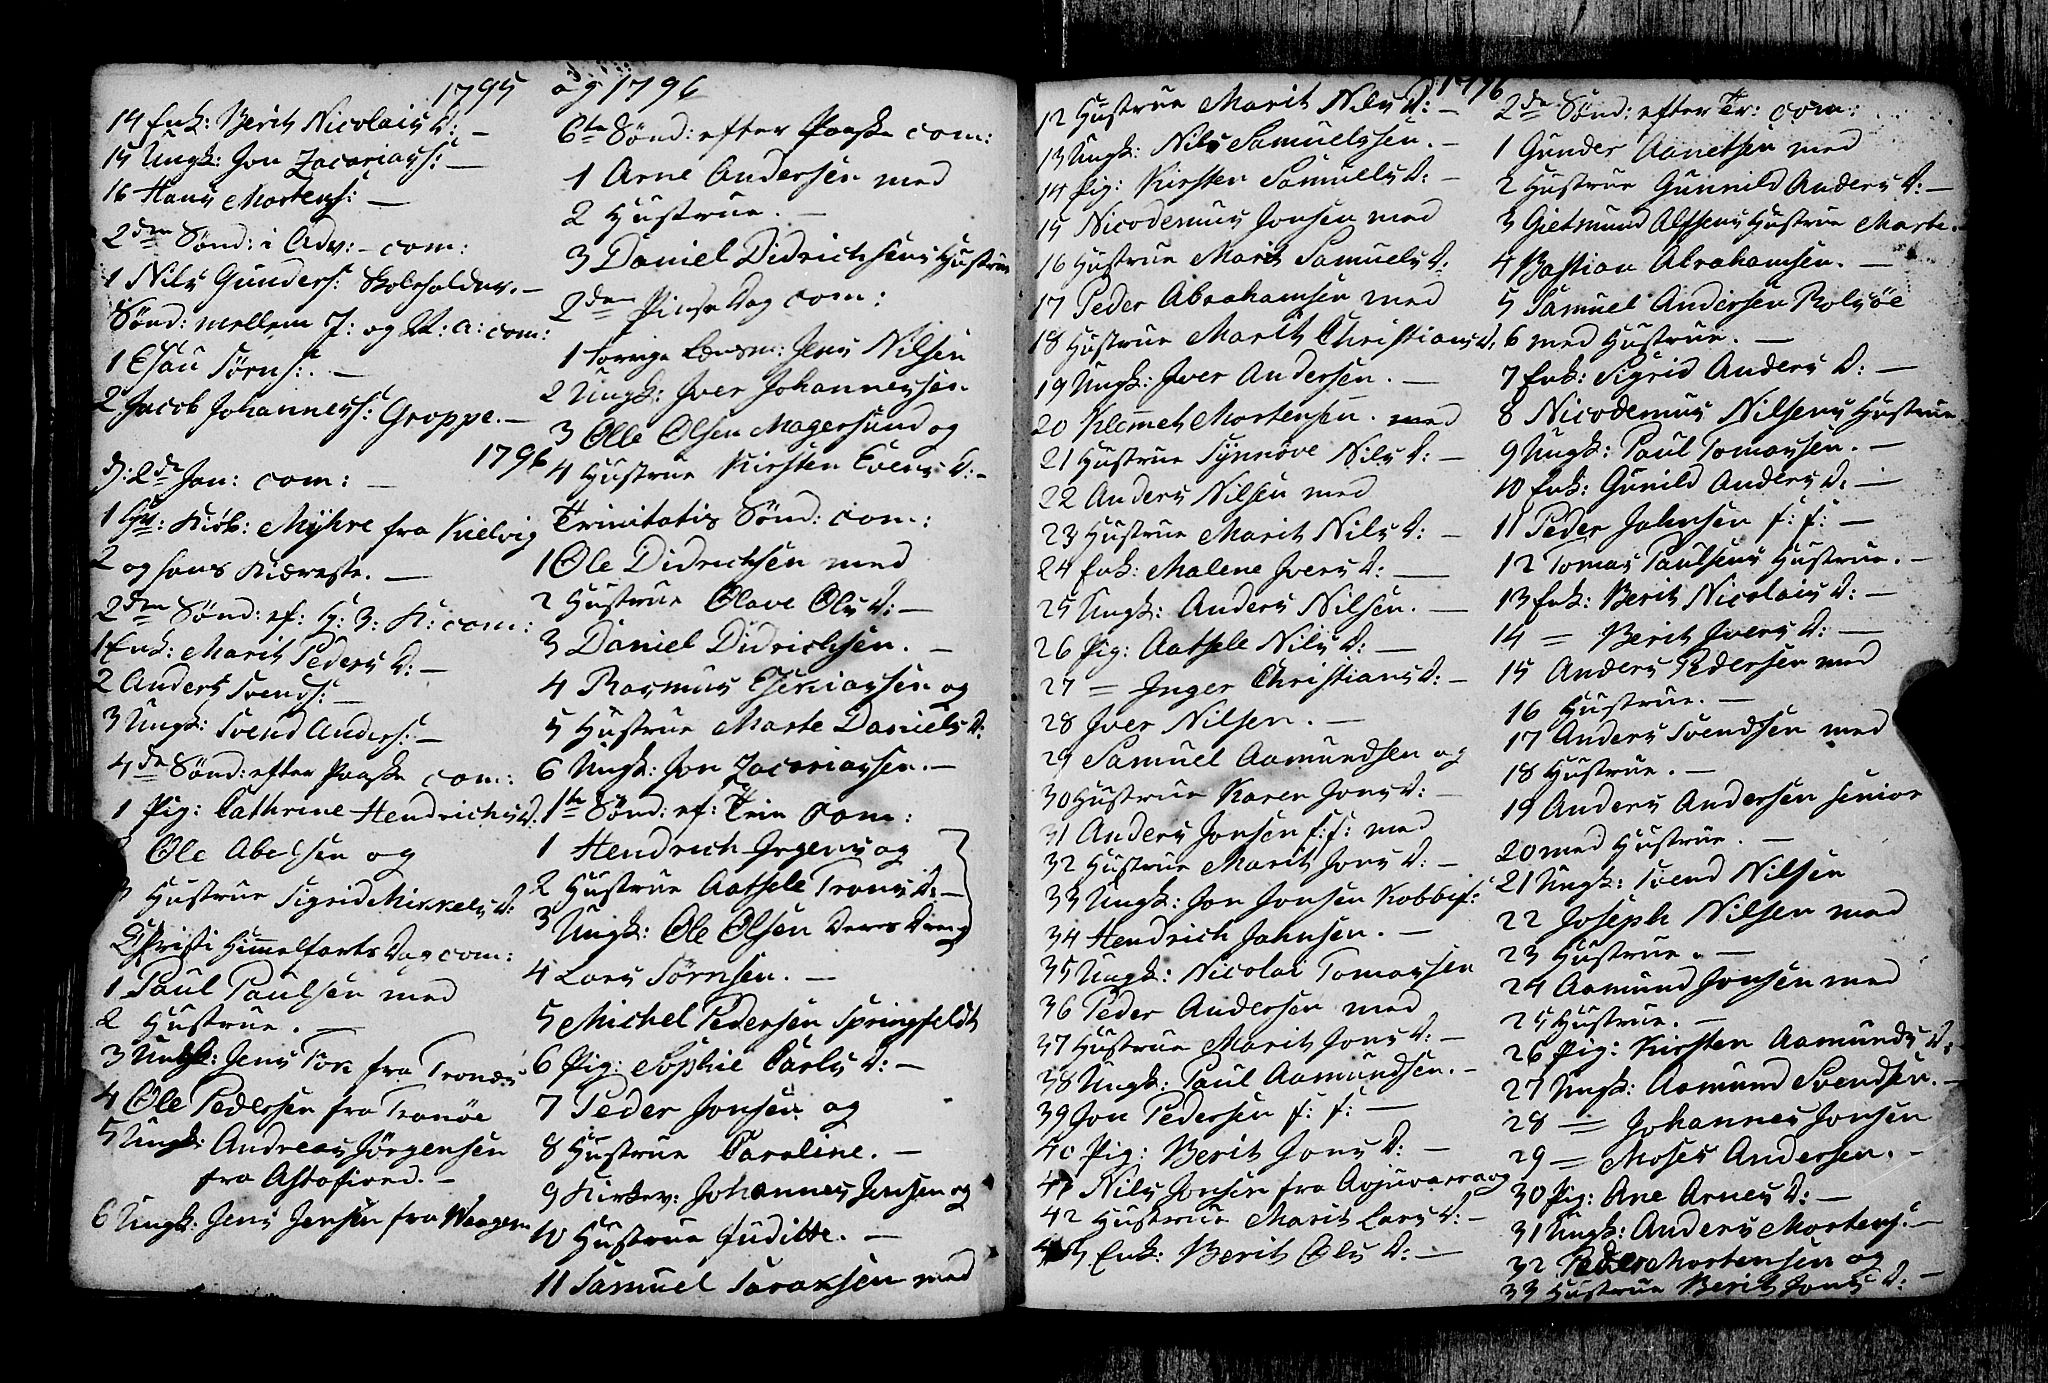 1795
14 Enk: Berit Nicolais D: —
15 Ungk: Jon Zacariass: —
16 Hans Mortens: —
2den Sønd: i Adv: – com:
1 Nils Gunders: Skoleholder. —
Sønd: mellem J: og N: a: com:
1 Esau Sørns: —
2 Jacob Johanness: Groppe. —
1796
D: 2de Jan: com: —
1 Hr: Kiøb: Myhre fra Kielvig
2 og hans Kiæreste. —
2den Sønd: ef: H: 3: K: com:
1 Enk: Marit Peders D: —
2 Anders Svends: —
3 Ungk: Svend Anders: —
4de Sønd: efter Paaske com:
1 Pig: Cathrine Hendrichs D:
Ole Abelsen og
Hustrue Sigrid Mikkels D:
Christi Himmelfarts Dag com:
1 Paul Paulsen med
2 Hustrue. —
3 Ungk: Jens Tor fra Tronæs
4 Ole Pedersen fra Tronøe
5 Ungk: Andreas Jørgensen
fra Astafiord. —
6 Ungk: Jens Jensen fra Waagen
og 1796
6te Sønd: efter Paaske com:
1 Arne Andersen med
2 Hustrue. —
3 Daniel Didrichsens Hustrue
2den Pinse Dag com:
1 forrige Lensm: Jens Nilsen
2 Ungk: Iver Johannessen
3 Olle Olsen Magersund og
4 Hustrue Kirsten Evens D: —
Trinitatis Sønd: com:
1 Ole Didrichsen med
2 Hustrue Olave Ols D: —
3 Daniel Didrichsen. —
4 Rasmus Esekiassen og
5 Hustrue Marte Daniels D:
6 Ungk: Jon Zacariassen. —
1te Sønd: ef: Trin com:
1 Hendrich Irgens og
2 Hustrue Aathele Trons D: —
3 Ungk: Ole Olsen Deres Dreng
4 Lars Sørnsen. —
5 Michel Pedersen Springfeldt
6 Pig: Sophie Carls D: —
7 Peder Jonsen og
8 Hustrue Caroline. —
9 Kirkev: Johannes Jensen og
10 Hustrue Juditte. —
11 Samuel Saraksen med
1796
12 Hustrue Marit Nils D: —
13 Ungk: Nils Samuelssen. —
14 Pig: Kirsten Samuels D: —
15 Nicodemus Jonsen med
16 Hustrue Marit Samuels D:
17 Peder Abrahamsen med
18 Hustrue Marit Christians D:
19 Ungk: Iver Andersen. —
20 Klemet Mortensen. med
21 Hustrue Synnøve Nils D: —
22 Anders Nilsen med
23 Hustrue Marit Nils D: —
24 Enk: Malene Ivers D: —
25 Ungk: Anders Nilsen. —
26 Pig: Aathele Nils D: —
27 = Inger Christians D: —
28 Iver Nilsen. —
29 Samuel Aamundsen og
30 Hustrue Karen Jons D: —
31 Anders Jonsen f: f: med
32 Hustrue Marit Jons D: —
33 Ungk: Jon Jonsen Kobbif:
34 Hendrich Jahnsen. —
35 Ungk: Nicolai Tomassen
36 Peder Andersen med
37 Hustrue Marit Jons D: —
38 Ungk: Paul Aamundsen. —
39 Jon Pedersen f: f: —
40 Pig: Berit Jons D: —
41 Nils Jonsen fra Aujuvarra og
42 Hustrue Marit Lars D: —
43 Enk: Berit Ols D: —
2den Sønd: efter Tr: com:
1 Gunder Aanetsen med
2 Hustrue Gunnild Anders D: —
3 Gietmund Alfsens Hustrue Marte. —
4 Bastian Abrahamsen. —
5 Samuel Andersen Rolsøe
6 med Hustrue. —
7 Enk: Sigrid Anders D: —
8 Nicodemus Nilsens Hustrue
9 Ungk: Paul Tomassen. —
10 Enk: Gunild Anders D: —
11 Peder Jahnsen f: f: —
12 Tomas Paulsens Hustrue. —
13 Enk: Berit Nicolais D: —
14 = Berit Ivers D: —
15 Anders Pedersen med
16 Hustrue. —
17 Anders Svendsen med
18 Hustrue. —
19 Anders Andersen senior
20 med Hustrue. —
21 Ungk: Svend Nilsen
22 Joseph Nilsen med
23 Hustrue. —
24 Aamund Jonsen med
25 Hustrue. —
26 Pig: Kirsten Aamunds D:
27 Ungk: Aamund Svendsen. —
28 = Johannes Jonsen
29 = Moses Andersen. —
30 Pig: Ane Arnes D: —
31 Ungk: Anders Mortens: —
32 Peder Mortensen og
33 Hustrue Berit Jons D: —